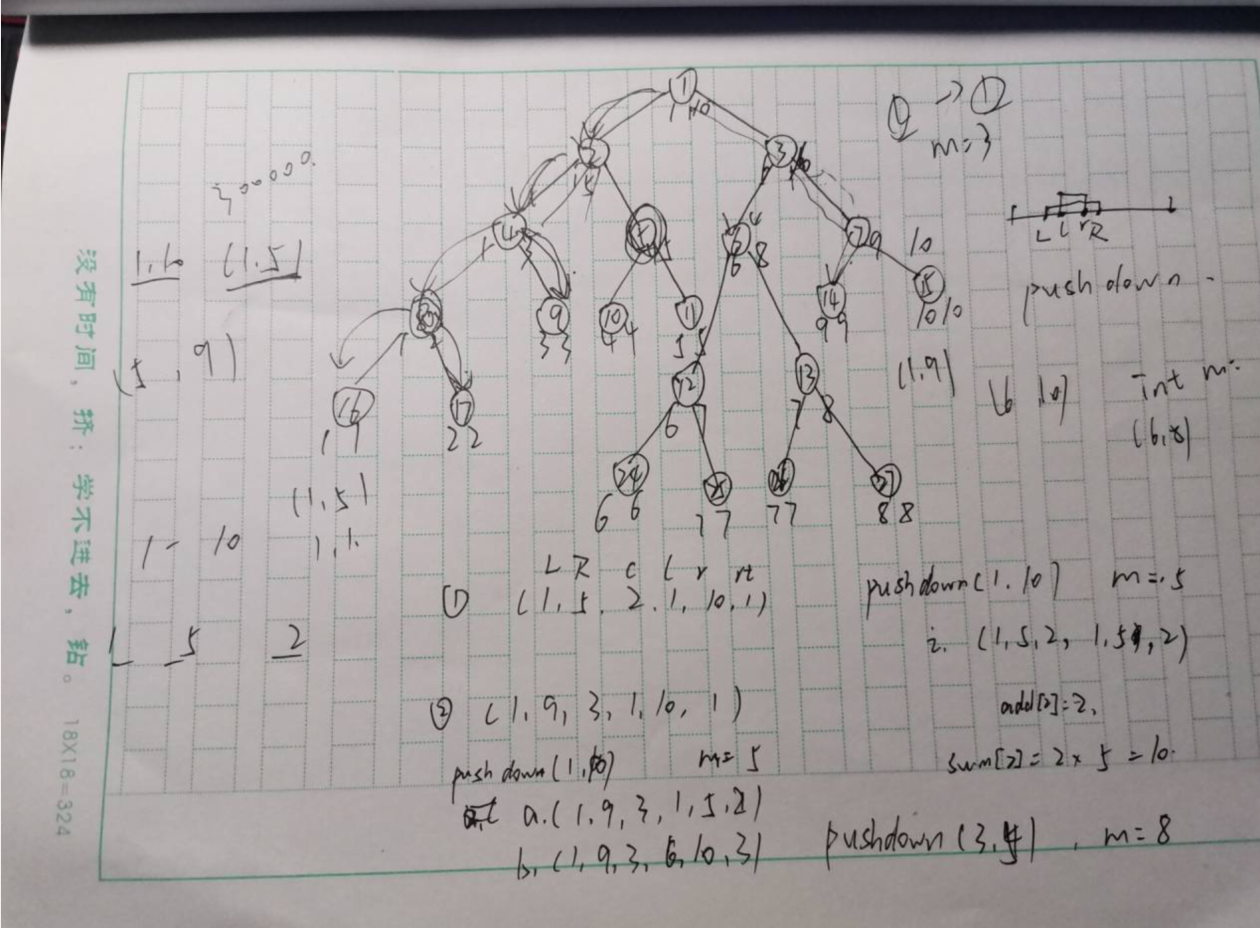 1
1 10
① → ①
m=3
2
3
1 5
4
7
9
10
1 3
6 8
L l r R
1.10 (1.5)
push down
9
10
11
14
15
3 3
4 4
5 5
9 9
10 10
(5 , 9)
12
13
(1,9)
(6 10)
int m:
16
17
6 7
7 8
(6,8)
1 1
2 2
(1,5)
6 6
7 7
7 7
8 8
1 - 10
L R c l r rt
① (1,5,2,1,10,1)
pushdown(1.10) m=5
i. (1,5,2, 1,5,2)
5 2
② (1,9,3,1,10,1)
add[2]=2,
pushdown(1,10) m=5
sum[2]=2×5=10.
a.(1,9,3,1,5,2)
b.(1,9,3,6,10,3)
pushdown (3,4) , m=8
没有时间，挤；学不进去，钻。 18X18=324